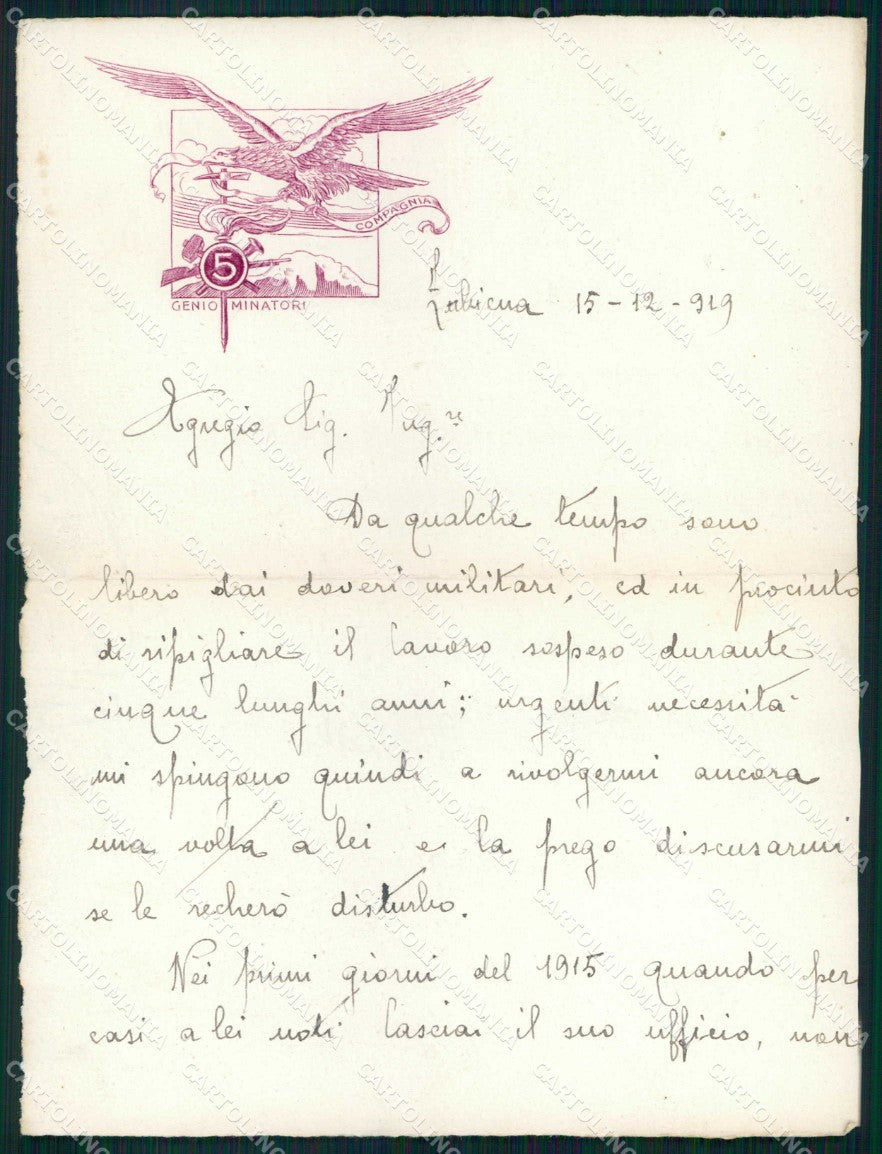 COMPAGNIA
5
GENIO MINATORI
15-12-919
Egregio Sig. Ing.re
Da qualche tempo sono
libero dai doveri militari, ed in procinto
di ripigliare il lavoro sospeso durante
cinque lunghi anni; urgenti necessità
mi spingono quindi a rivolgermi ancora
una volta a lei e la prego di scusarmi
se le recherò disturbo.
Nei primi giorni del 1915 quando per
casi a lei noti lasciai il suo ufficio, non